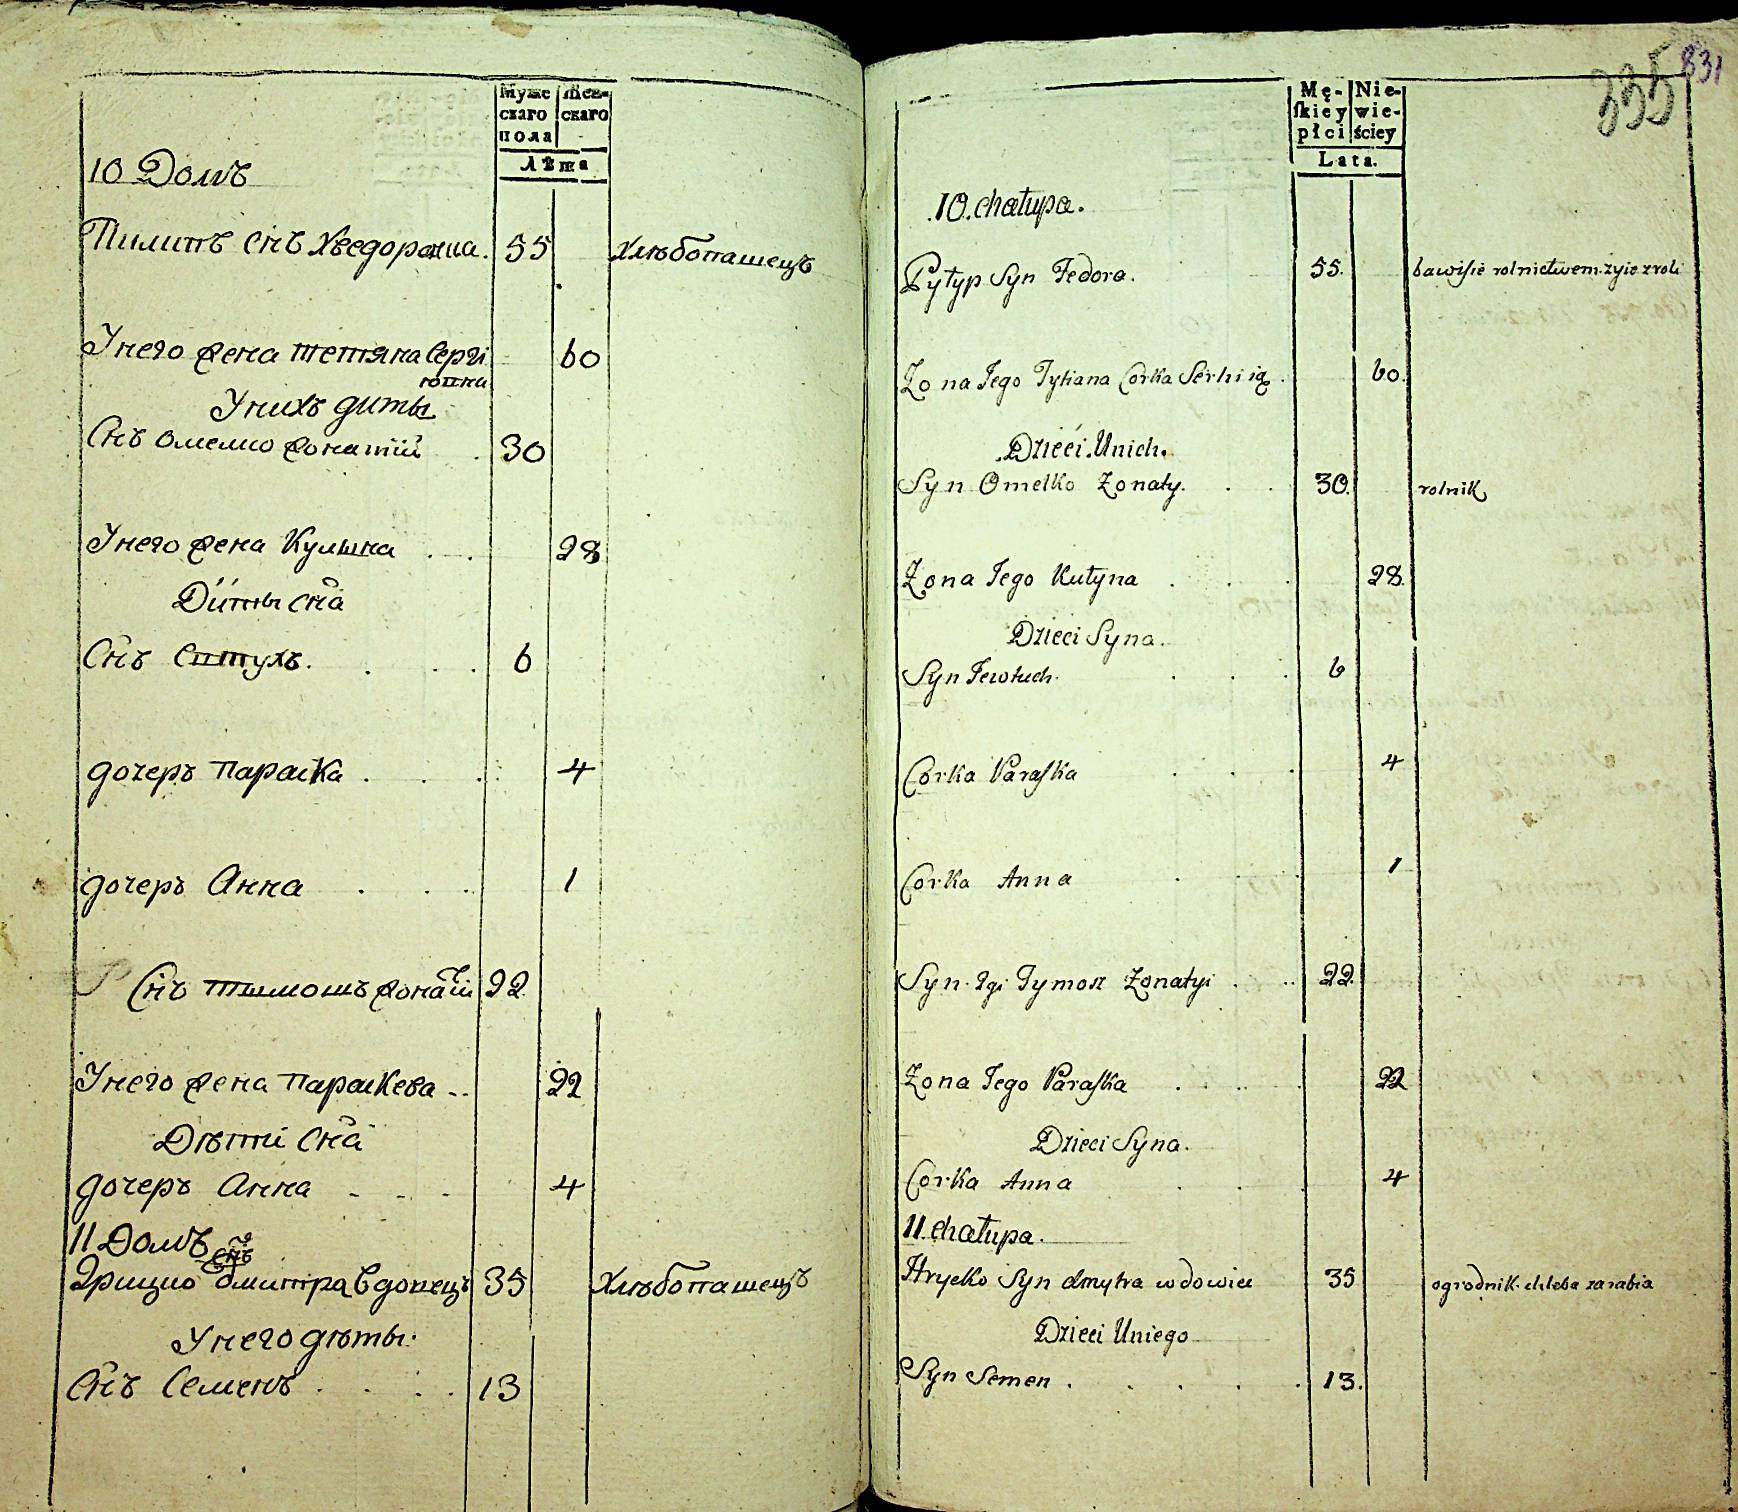 Муже Жен-
скаго скаго
пола
Лѣта
10 Домъ
Пилипъ Сн҃ъ Хведоромча. 55 Хлѣбопашецъ
Унего жена Тетяна Сергі 60
ювна
Унихъ диты
Сн҃ъ Омелко жонатій 30
Унего жена Кулына 28
Діты Сн҃а
Сн҃ъ Євтухъ. 6
дочеръ Параска 4
дочеръ Анна 1
Сн҃ъ Тымошъ жонатій 22
Унего жена Параскева 22
Дѣти Сн҃а
дочеръ Анна 4
11 Домъ
Сн҃ъ
Грицко Дмитра вдовецъ 35 Хлѣбопашецъ
Унего дѣты.
Сн҃ъ Семенъ 13
831
335
Mę- Nie-
ſkiey wie-
płci ściey
Lata.
10. chałupa.
Pyłyp Syn Fedora. 55. bawisie rolnictwem. zyie z roli
Zona Jego Tytiana Corka Serhiia. 60.
Dzieci Unich.
Syn Omelko Zonaty. 30. rolnik
Zona Jego Kułyna 28.
Dzieci Syna.
Syn Jewtuch. 6
Corka Paraſka 4
Corka Anna 1
Syn 2gi Tymosz Zonatyi 22.
Zona Jego Paraſka 22
Dzieci Syna.
Corka Anna 4
11 chałupa.
Hrycko Syn dmytra wdowiec 35 ogrodnik. chleba zarabia
Dzieci Uniego
Syn Semen 13.